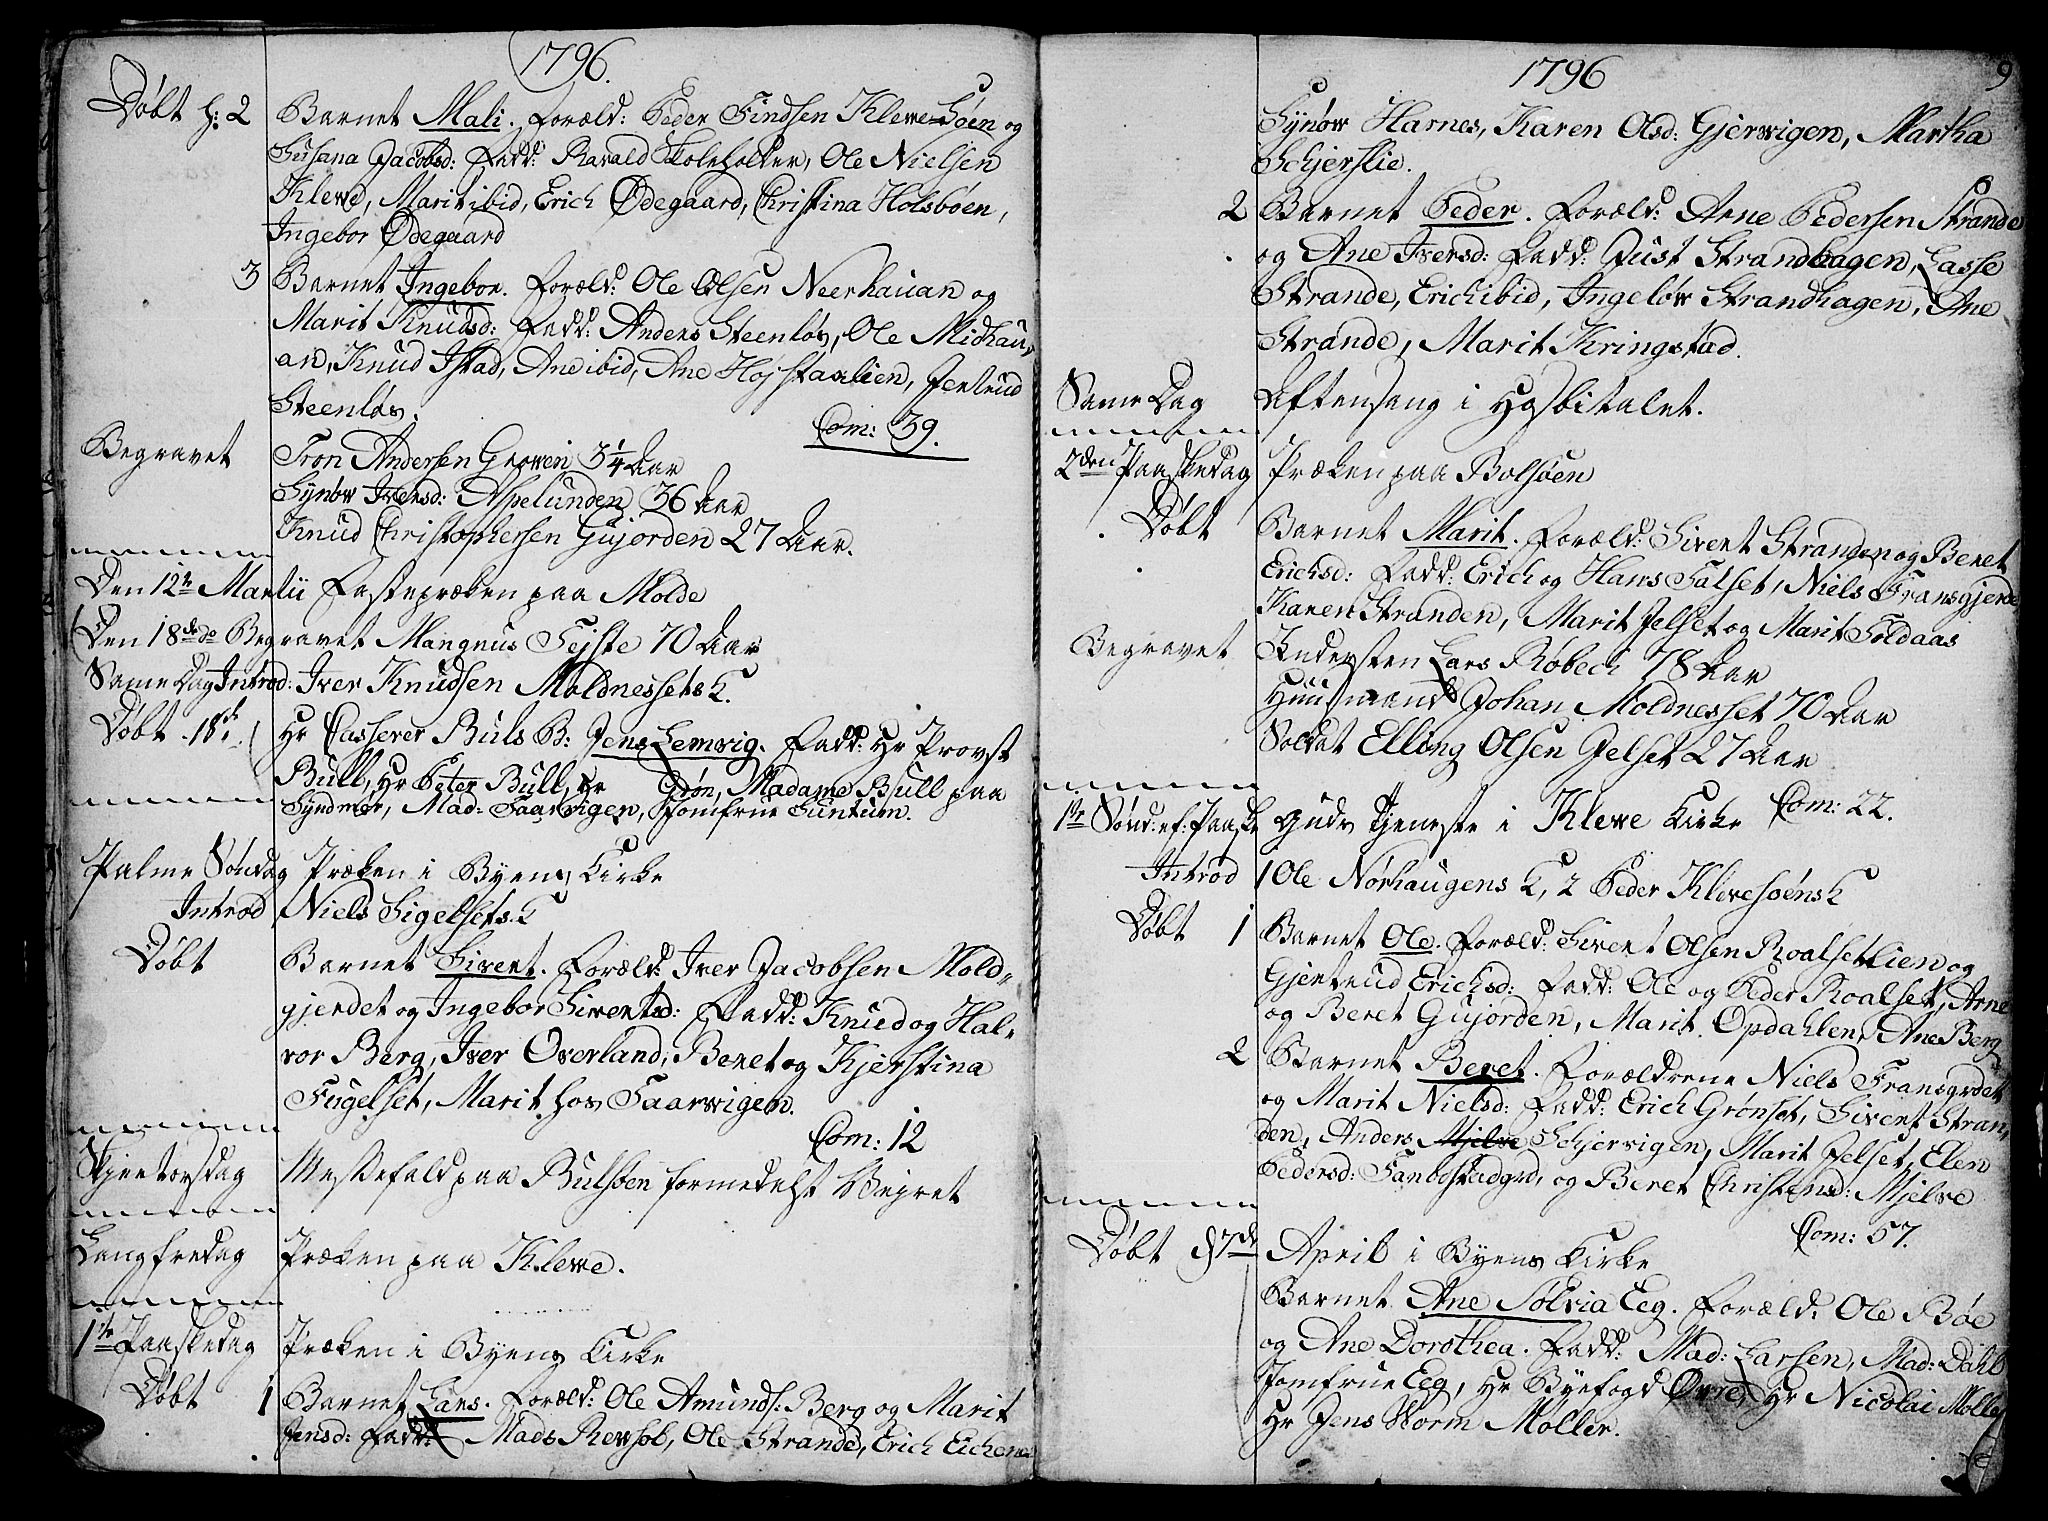 1796.
Døbt h: 2 Barnet Mali. Foræld: Peder Findsen Klewe-Søen og
Susana Jacobsd: Fadd: Ravald Skoleholder, Ole Nielsen
Klewe, Marit ibid, Erich Ødegaard, Christina Holsbøen,
Ingebor Ødegaard
3 Barnet Ingebor. Foræld: Ole Olsen Neerhauan og
Marit Knudsd: Fadd: Anders Steenløs, Ole Midhau-
an, Knud Istad, Ane ibid, Ane Hojstaalien, Jertrud
Steenløs.
Com: 39.
Begravet Tron Andersen Growen 3 1/4 Aar
Synøw Iversd: Aspelunden 36 Aar
Knud Christophersen Gujorden 27 Aar.
Den 12te Martii Fastepræken paa Molde
Den 18de do Begravet Mangnus Tejste 70 Aar
Same Dag Introd: Iver Knudsen Moldnessets K.
Døbt 18d. Hr Casserer Buls B: Jens Lemvig. Fadd: Hr Provst
Bull, Hr Peter Bull, Hr Grøn, Madame Bull paa
Syndmør, Mad: Faarvigen, Jomfrue Suntum.
Palme Søndag Præken i Byens Kirke
Introd Niels Sigelsets K
Døbt Barnet Sivert. Foræld: Iver Jacobsen Mold-
gjerdet og Ingebor Sivertsd: Fadd: Knud og Hal-
vor Berg, Iver Overland, Beret og Kjerstina
Fugelset, Marit hos Faarwigen.
Com: 12
Skjertorsdag Messefald paa Bulsøen formedelst Vejret
Langfredag Præken paa Klewe.
1te Paaskedag Præken i Byens Kirke
Døbt 1 Barnet Lars. Foræld: Ole Amunds: Berg og Marit
Jensd: Fadd: Mads Rewsob, Ole Strande, Erich Eichem
1796 9
Synøw Harnes, Karen Olsd: Gjerwigen, Martha
Schjerslie.
2 Barnet Peder. Foræld: Arne Pedersen Strande
og Ane Iversd: Fadd: Just Strandhagen, Lasse
Strande, Erich ibid, Ingeløw Strandhagen, Ane
Strande, Marit Kringstad.
Same Dag Aftensang i Hosbitalet.
2den Paaskedag Præken paa Bolsøen
Døbt Barnet Marit. Foræld: Sivert Stranden og Beret
Erichsd: Fadd: Erich og Hans Falset, Niels Fransgjerde
Karen Stranden, Marit Jelset og Marit Foldaas
Begravet Inderster Lars Røbech 78 Aar
Huusmand Johan Moldnesset 70 Aar
Soldat Elling Olsen Jelset 27 Aar
Com: 22.
1te Sønd: ef: Paaske Guds Tjeneste i Klewe Kirke
Introd 1 Ole Nørhaugens K, 2 Peder Klevesøens K
Døbt 1 Barnet Ole. Foræld: Sivert Olsen Roalsetlien og
Gjertrud Erichsd: Fadd: Ole og Peder Roalset, Arne
og Beret Gujorden, Marit Opdahlen, Ane Berg
2 Barnet Beret. Forældrene Niels Fransgrdet
og Marit Nielsd: Fadd: Erich Grønset, Sivert Stran-
den, Anders Mjelve Schjervigen, Marit Jelset, Elen
Pedersd: Fanbostadgrd, og Beret Christensd: Mjelve
Com: 57.
Døbt d 7de April i Byens Kirke
Barnet Ane Solvia Eeg. Foræld: Ole Bøe
og Ane Dorothea. Fadd: Mad: Larsen, Mad: Dahl
Jomfrue Eeg, Hr Byefogd Øvre, Hr Nicolai Møller
Hr Jens Worm Møller.